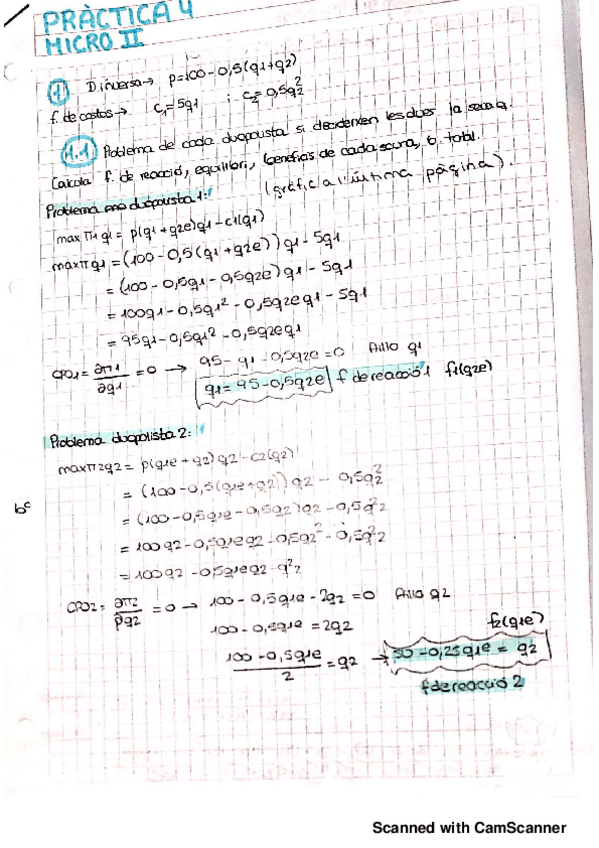 PRÀCTICA 4
MICRO II
1 D. inversa → p=100-0,5(q1+q2)
f. de costos → C1=5q1 i C2=0,5q2²
1.1 Problema de cada duopolista si decideixen les dues la seua q.
Calcula f. de reacció, equilibri, beneficis de cada seura, b. total.
(gràfic a l'última pàgina).
Problema duopolista 1:
max π1 q1 = p(q1+q2e)q1-c1(q1)
max π q1 = (100-0,5(q1+q2e))q1-5q1
= (100-0,5q1-0,5q2e)q1-5q1
= 100q1-0,5q1²-0,5q2eq1-5q1
= 95q1-0,5q1²-0,5q2eq1
CPO1= ∂π1/∂q1 =0 → 95-q1-0,5q2e=0 Aïllo q1
q1=95-0,5q2e f de reacció 1 f1(q2e)
Problema duopolista 2:
max π2q2 = p(q1e+q2)q2-c2(q2)
= (100-0,5(q1e+q2))q2-0,5q2²
bº
= (100-0,5q1e-0,5q2)q2-0,5q2²
= 100q2-0,5q1eq2-0,5q2²-0,5q2²
= 100q2-0,5q1eq2-q2²
CPO2= ∂π2/∂q2 =0 → 100-0,5q1e-2q2=0 Aïllo q2
100-0,5q1e=2q2
f2(q1e)
100-0,5q1e/2 =q2 → 50-0,25q1e = q2
f de reacció 2
Scanned with CamScanner